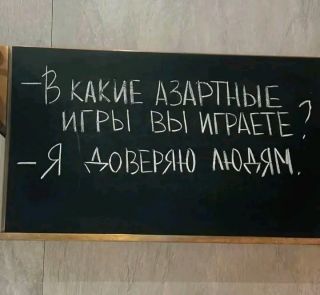 – В КАКИЕ АЗАРТНЫЕ
ИГРЫ ВЫ ИГРАЕТЕ?
– Я ДОВЕРЯЮ ЛЮДЯМ.